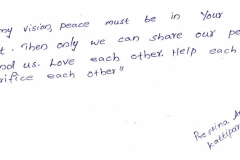 my vision, peace must be in Your
t. Then only we can share our pe
nd us. Love each other. Help each
rifice each other"